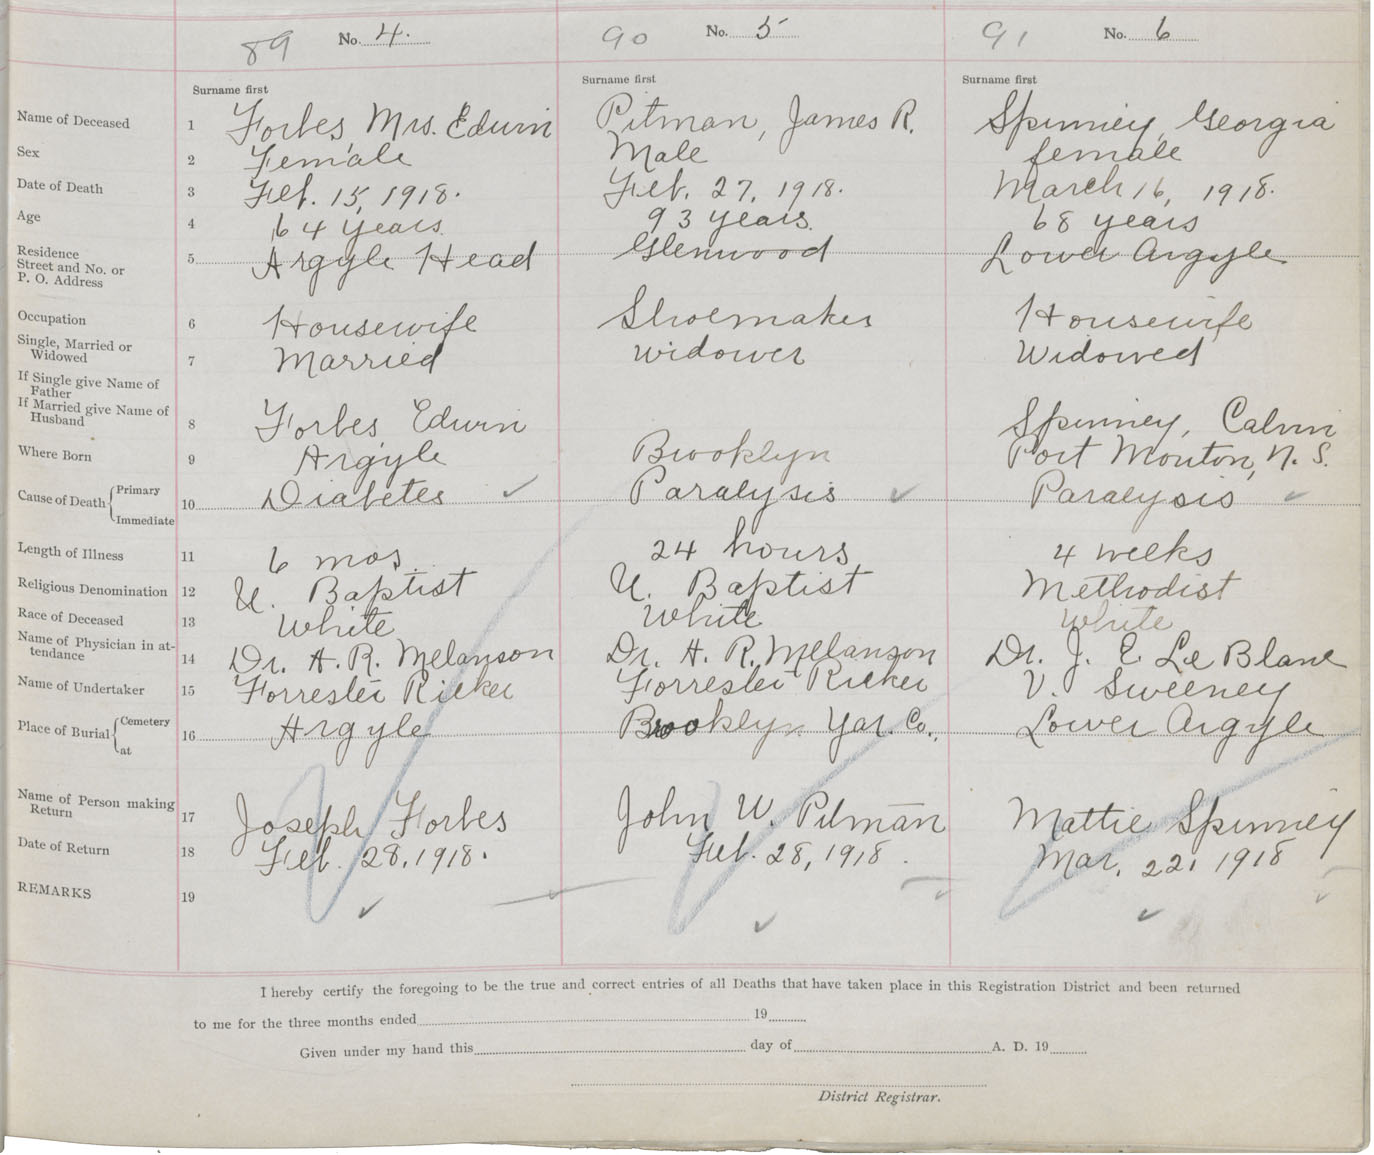 89 No. 4. 90 No. 5 91 No. 6
Surname first Surname first Surname first
Name of Deceased 1 Forbes, Mrs. Edwin Pitman, James R. Spinney, Georgia
Sex 2 Female Male female
Date of Death 3 Feb. 15, 1918. Feb. 27, 1918. March 16, 1918.
Age 4 64 years. 93 years. 68 years
Residence
Street and No. or
P. O. Address 5 Argyle Head Glenwood Lower Argyle
Occupation 6 Housewife Shoemaker Housewife
Single, Married or
Widowed 7 Married widower Widowed
If Single give Name of
Father
If Married give Name of
Husband 8 Forbes Edwin Spinney, Calvin
Where Born 9 Argyle Brooklyn Port Mouton, N. S.
Cause of Death { Primary
Immediate 10 Diabetes ✓ Paralysis ✓ Paralysis ✓
Length of Illness 11 6 mos. 24 hours 4 weeks
Religious Denomination 12 U. Baptist U. Baptist Methodist
Race of Deceased 13 White White White
Name of Physician in at-
tendance 14 Dr. A. R. Melanson Dr. A. R. Melanson Dr. J. E. Le Blanc
Name of Undertaker 15 Forrester Ricker Forrester Ricker V. Sweeney
Place of Burial { Cemetery
at 16 Argyle Brooklyn Yar. Co., Lower Argyle
Name of Person making
Return 17 Joseph Forbes John W. Pitman Mattie Spinney
Date of Return 18 Feb. 28, 1918. Feb. 28, 1918. Mar. 22, 1918
REMARKS 19
I hereby certify the foregoing to be the true and correct entries of all Deaths that have taken place in this Registration District and been returned
to me for the three months ended 19
Given under my hand this day of A. D. 19
District Registrar.